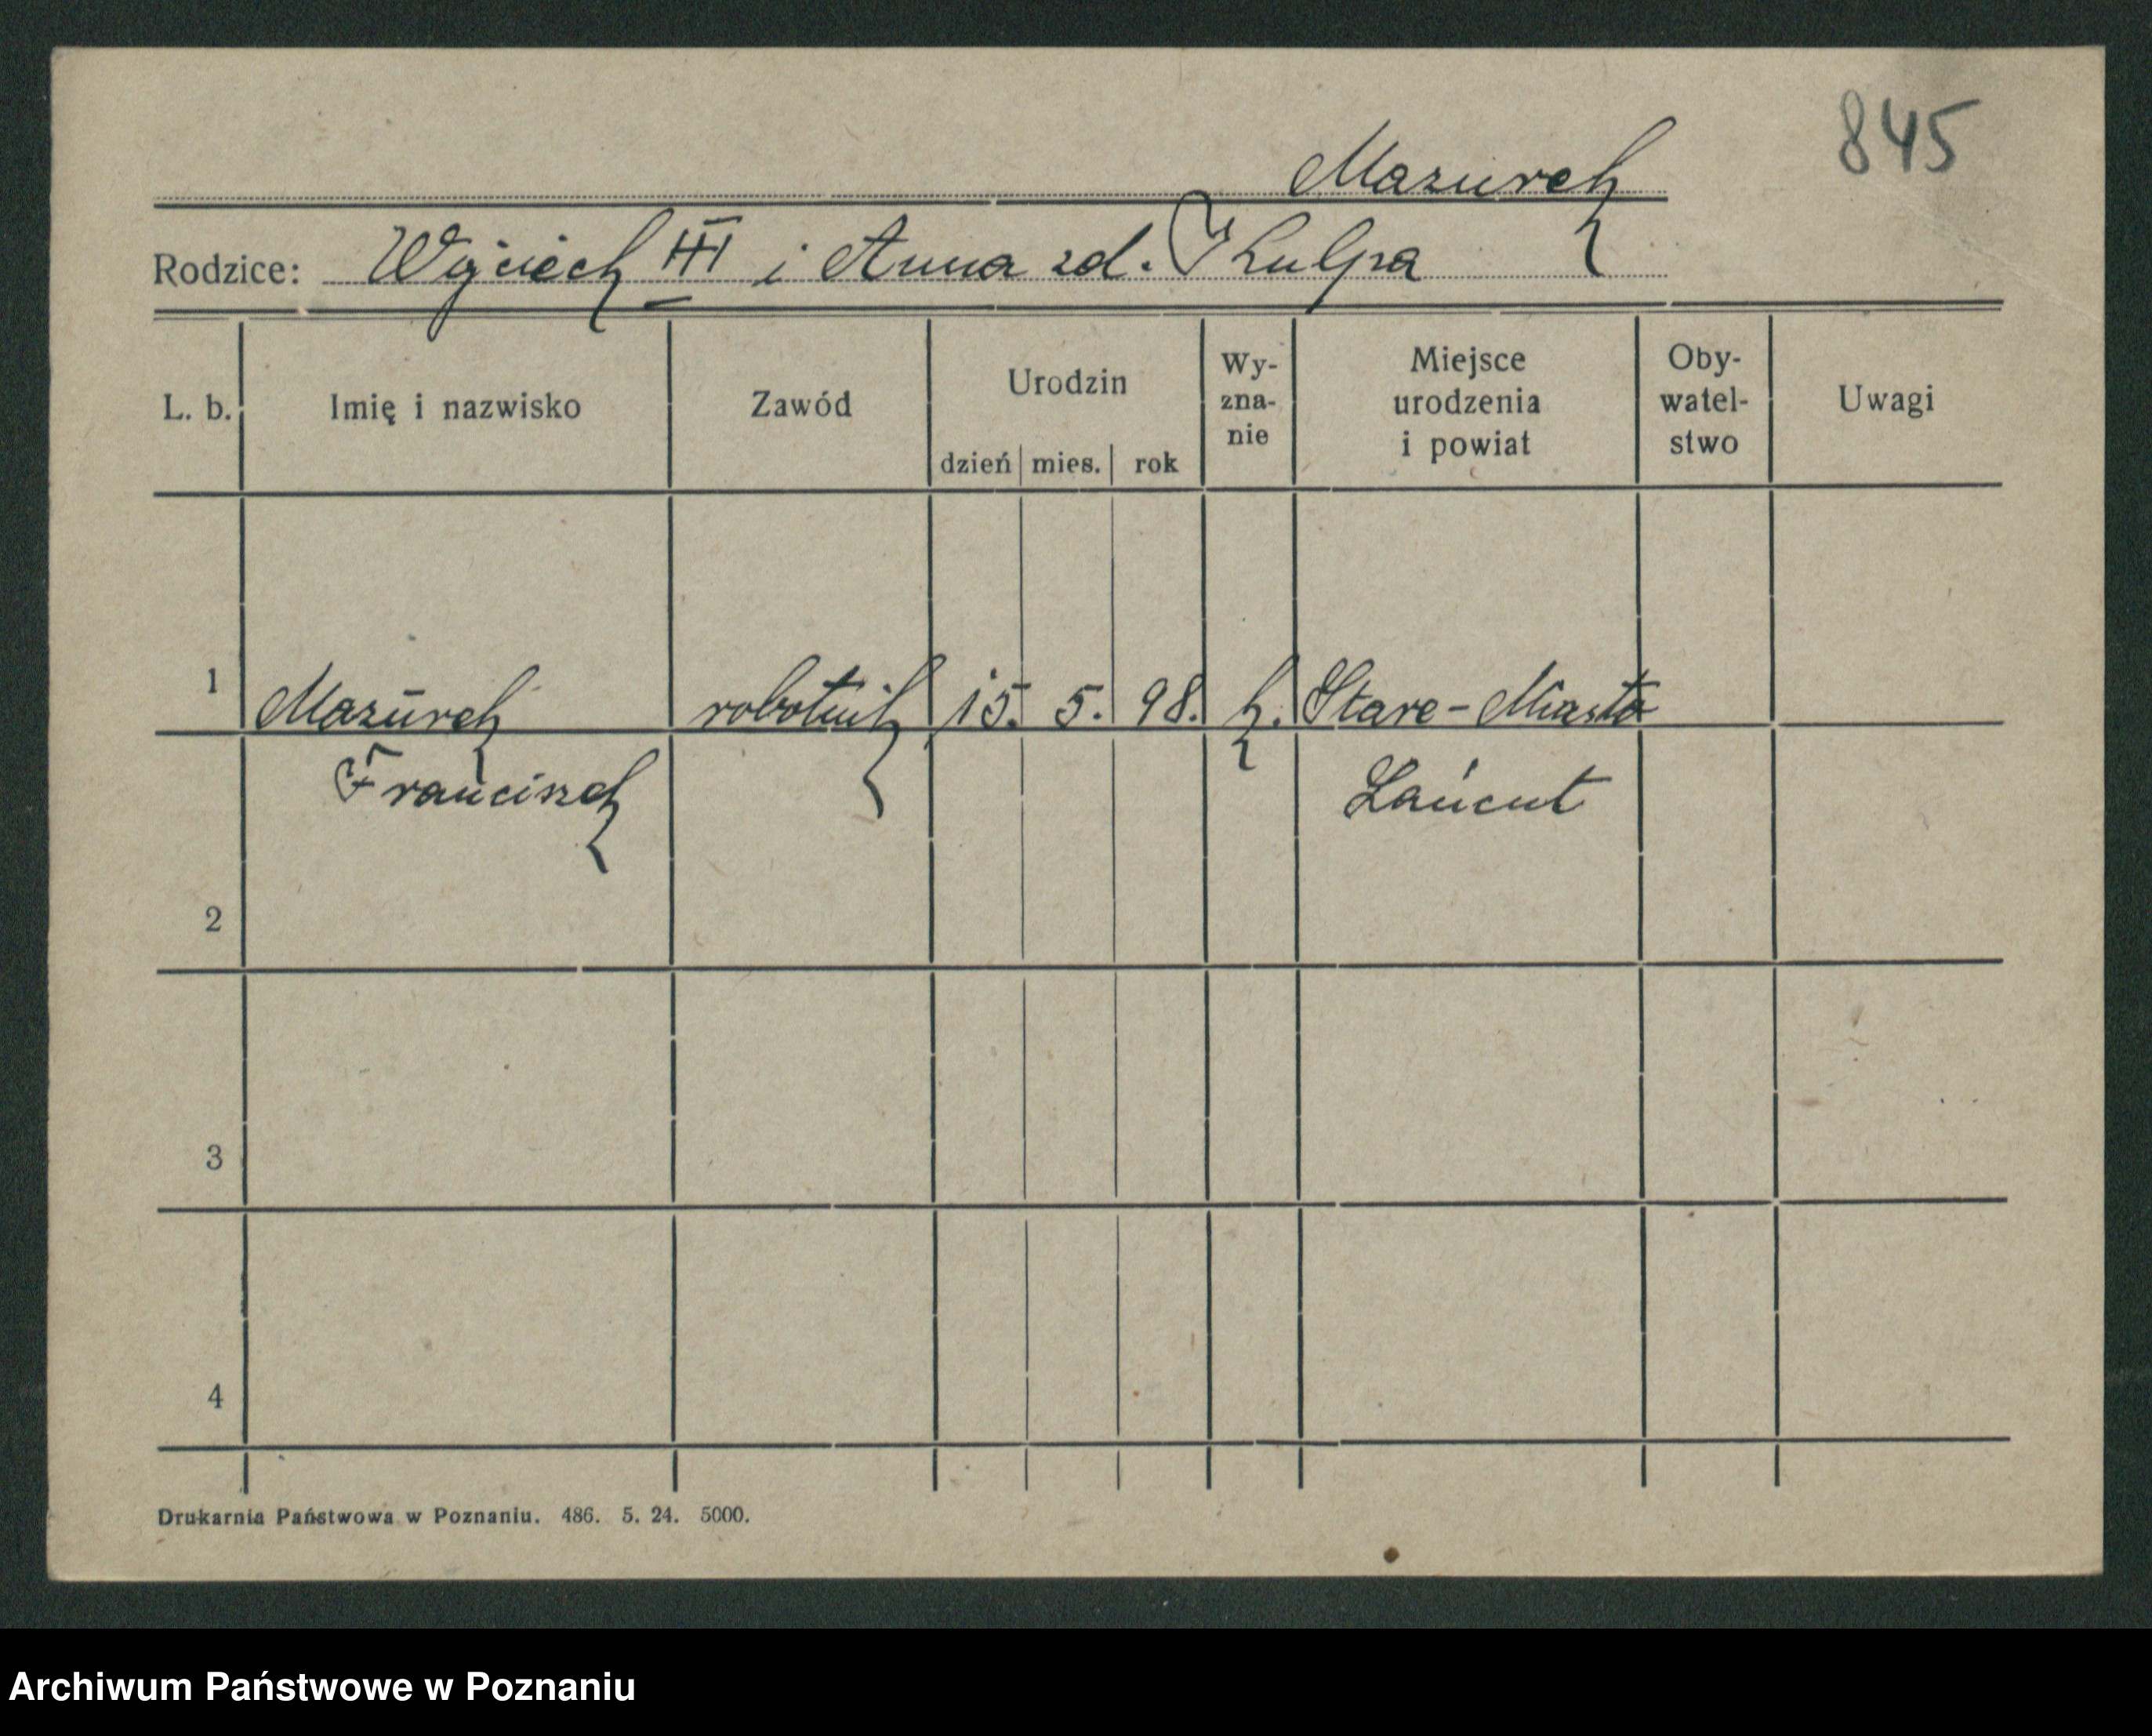 845
Mazurek
Rodzice: Wojciech III i Anna zd. Kulpa
L. b. Imię i nazwisko Zawód Urodzin dzień mies. rok Wy-zna-nie Miejsce urodzenia i powiat Oby-watel-stwo Uwagi
1 Mazurek robotnik 15. 5. 98. k. Stare-Miasto
Franciszek Łańcut
2
3
4
Drukarnia Państwowa w Poznaniu. 486. 5. 24. 5000.
Archiwum Państwowe w Poznaniu